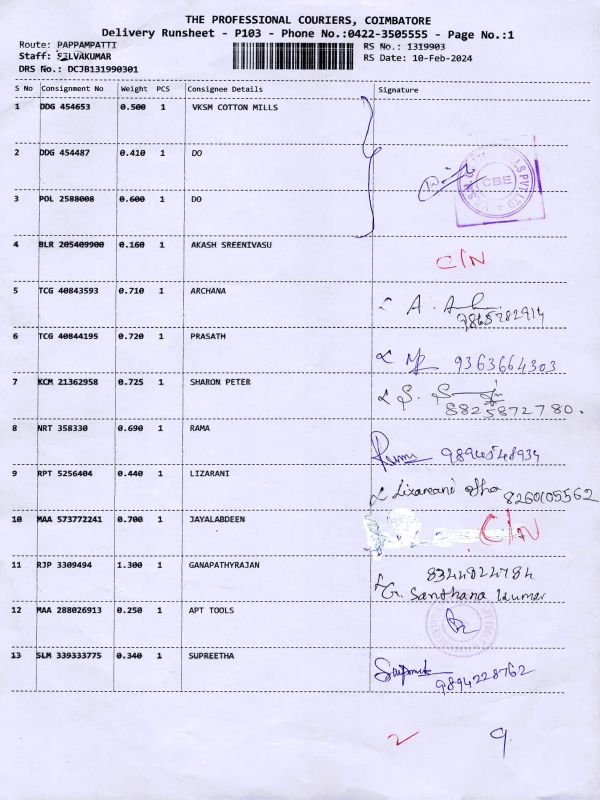 THE PROFESSIONAL COURIERS, COIMBATORE
Delivery Runsheet - P103 - Phone No.:0422-3505555 - Page No.:1
Route: PAPPAMPATTI
RS No.: 1319903
Staff: SILVAKUMAR
RS Date: 10-Feb-2024
DRS No.: DCJB131990301
S No Consignment No Weight PCS Consignee Details Signature
1 DDG 454653 0.500 1 VKSM COTTON MILLS
2 DDG 454487 0.410 1 DO
CBE
3 POL 2588008 0.600 1 DO
4 BLR 205409900 0.160 1 AKASH SREENIVASU
C/N
5 TCG 40843593 0.710 1 ARCHANA
6 TCG 40844195 0.720 1 PRASATH
9363664303
7 KCM 21362958 0.725 1 SHARON PETER
8825872780.
8 NRT 358330 0.690 1 RAMA
9 RPT 5256404 0.440 1 LIZARANI
8260105562
10 MAA 573772241 0.700 1 JAYALABDEEN
C/N
11 RJP 3309494 1.300 1 GANAPATHYRAJAN
8344824784
G. Santhana Kumar
12 MAA 288026913 0.250 1 APT TOOLS
13 SLM 339333775 0.340 1 SUPREETHA
9894228762
2 9